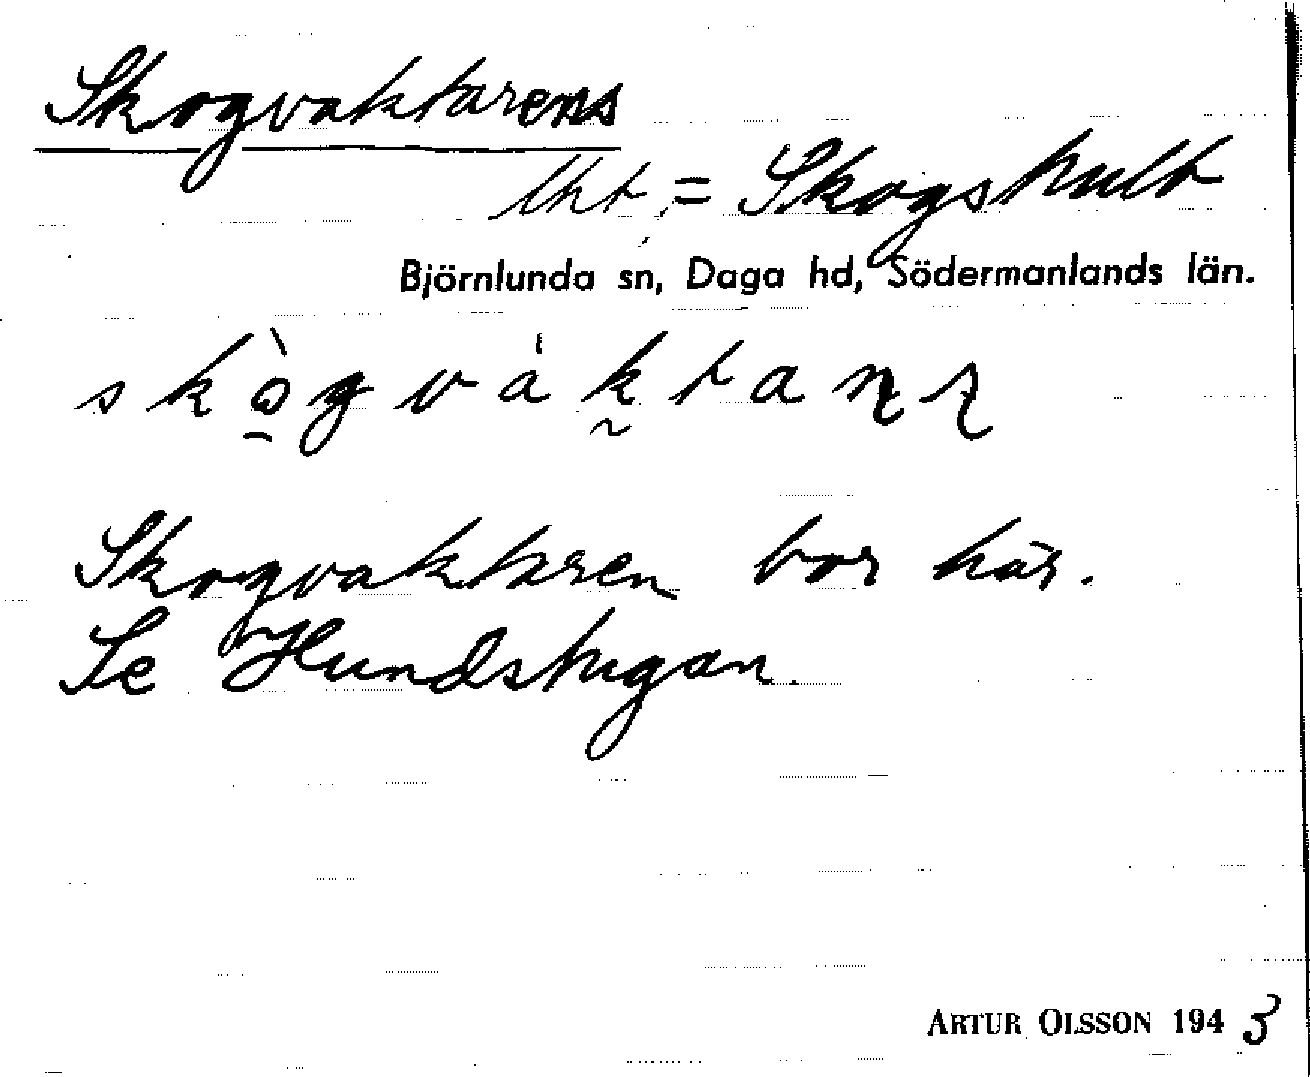 Skogvaktarens
lht = Skogshult
Björnlunda sn, Daga hd, Södermanlands län.
Skogvaktaren bor här.
Se Hundstugan.
ARTUR OLSSON 1943